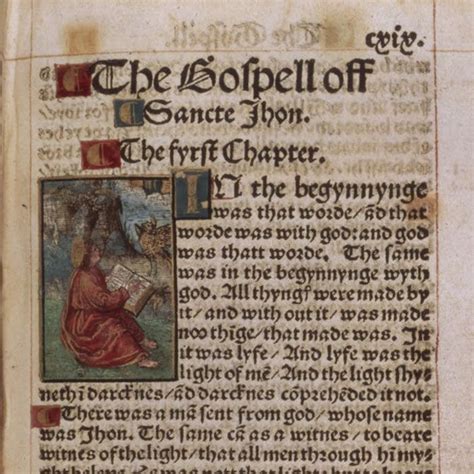 cxix.
The Gospell off
Sancte Jhon.
The fyrst Chapter.
IN the begynnynge
was that worde/ ād that
worde was with god: and god
was thatt worde. The same
was in the begynnynge wyth
god. All thyngꝭ were made by
it/ and with out it/ was made
noo thīge/ that made was. In
it was lyfe/ And lyfe was the
light of mē/ And the light shy-
neth ī darcknes/ ād darcknes cōprehēded it not.
There was a mā sent from god/ whose name
was Jhon. The same cā as a witnes/ to beare
witnes of the light/ that all men through hī my-